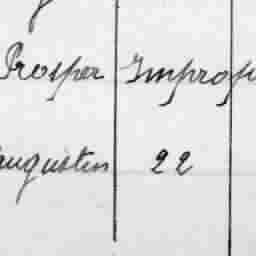 Prosper Improp
augustin 22